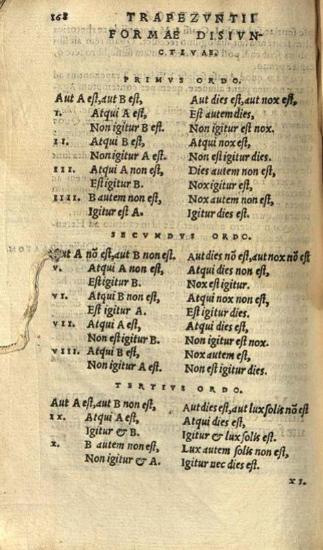 168 TRAPEZVNTII
FORMAE DISIVN-
CTIVAE.
PRIMVS ORDO.
Aut A est, aut B est, Aut dies est, aut nox est,
I. Atqui A est, Est autem dies,
Non igitur B est. Non igitur est nox.
II. Atqui B est, Atqui nox est,
Non igitur A est. Non est igitur dies.
III. Atqui A non est, Dies autem non est,
Est igitur B. Nox igitur est,
IIII. B autem non est, Nox autem non est,
Igitur est A. Igitur dies est.
SECVNDVS ORDO.
Aut A nõ est, aut B non est. Aut dies nõ est, aut nox nõ est
V. Atqui A non est, Atqui dies non est,
Est igitur B. Nox est igitur.
VI. Atqui B non est, Atqui nox non est,
Est igitur A. Est igitur dies.
VII. Atqui A est, Atqui dies est,
Non est igitur B. Non igitur est nox.
VIII. Atqui B est, Nox autem est,
Non igitur A est. Non est igitur dies.
TERTIVS ORDO.
Aut A est, aut B non est, Aut dies est, aut lux solis nõ est
IX. Atqui A est, Atqui dies est,
Igitur & B. Igitur & lux solis est.
X. B autem non est, Lux autem solis non est,
Non igitur & A. Igitur nec dies est.
XI.